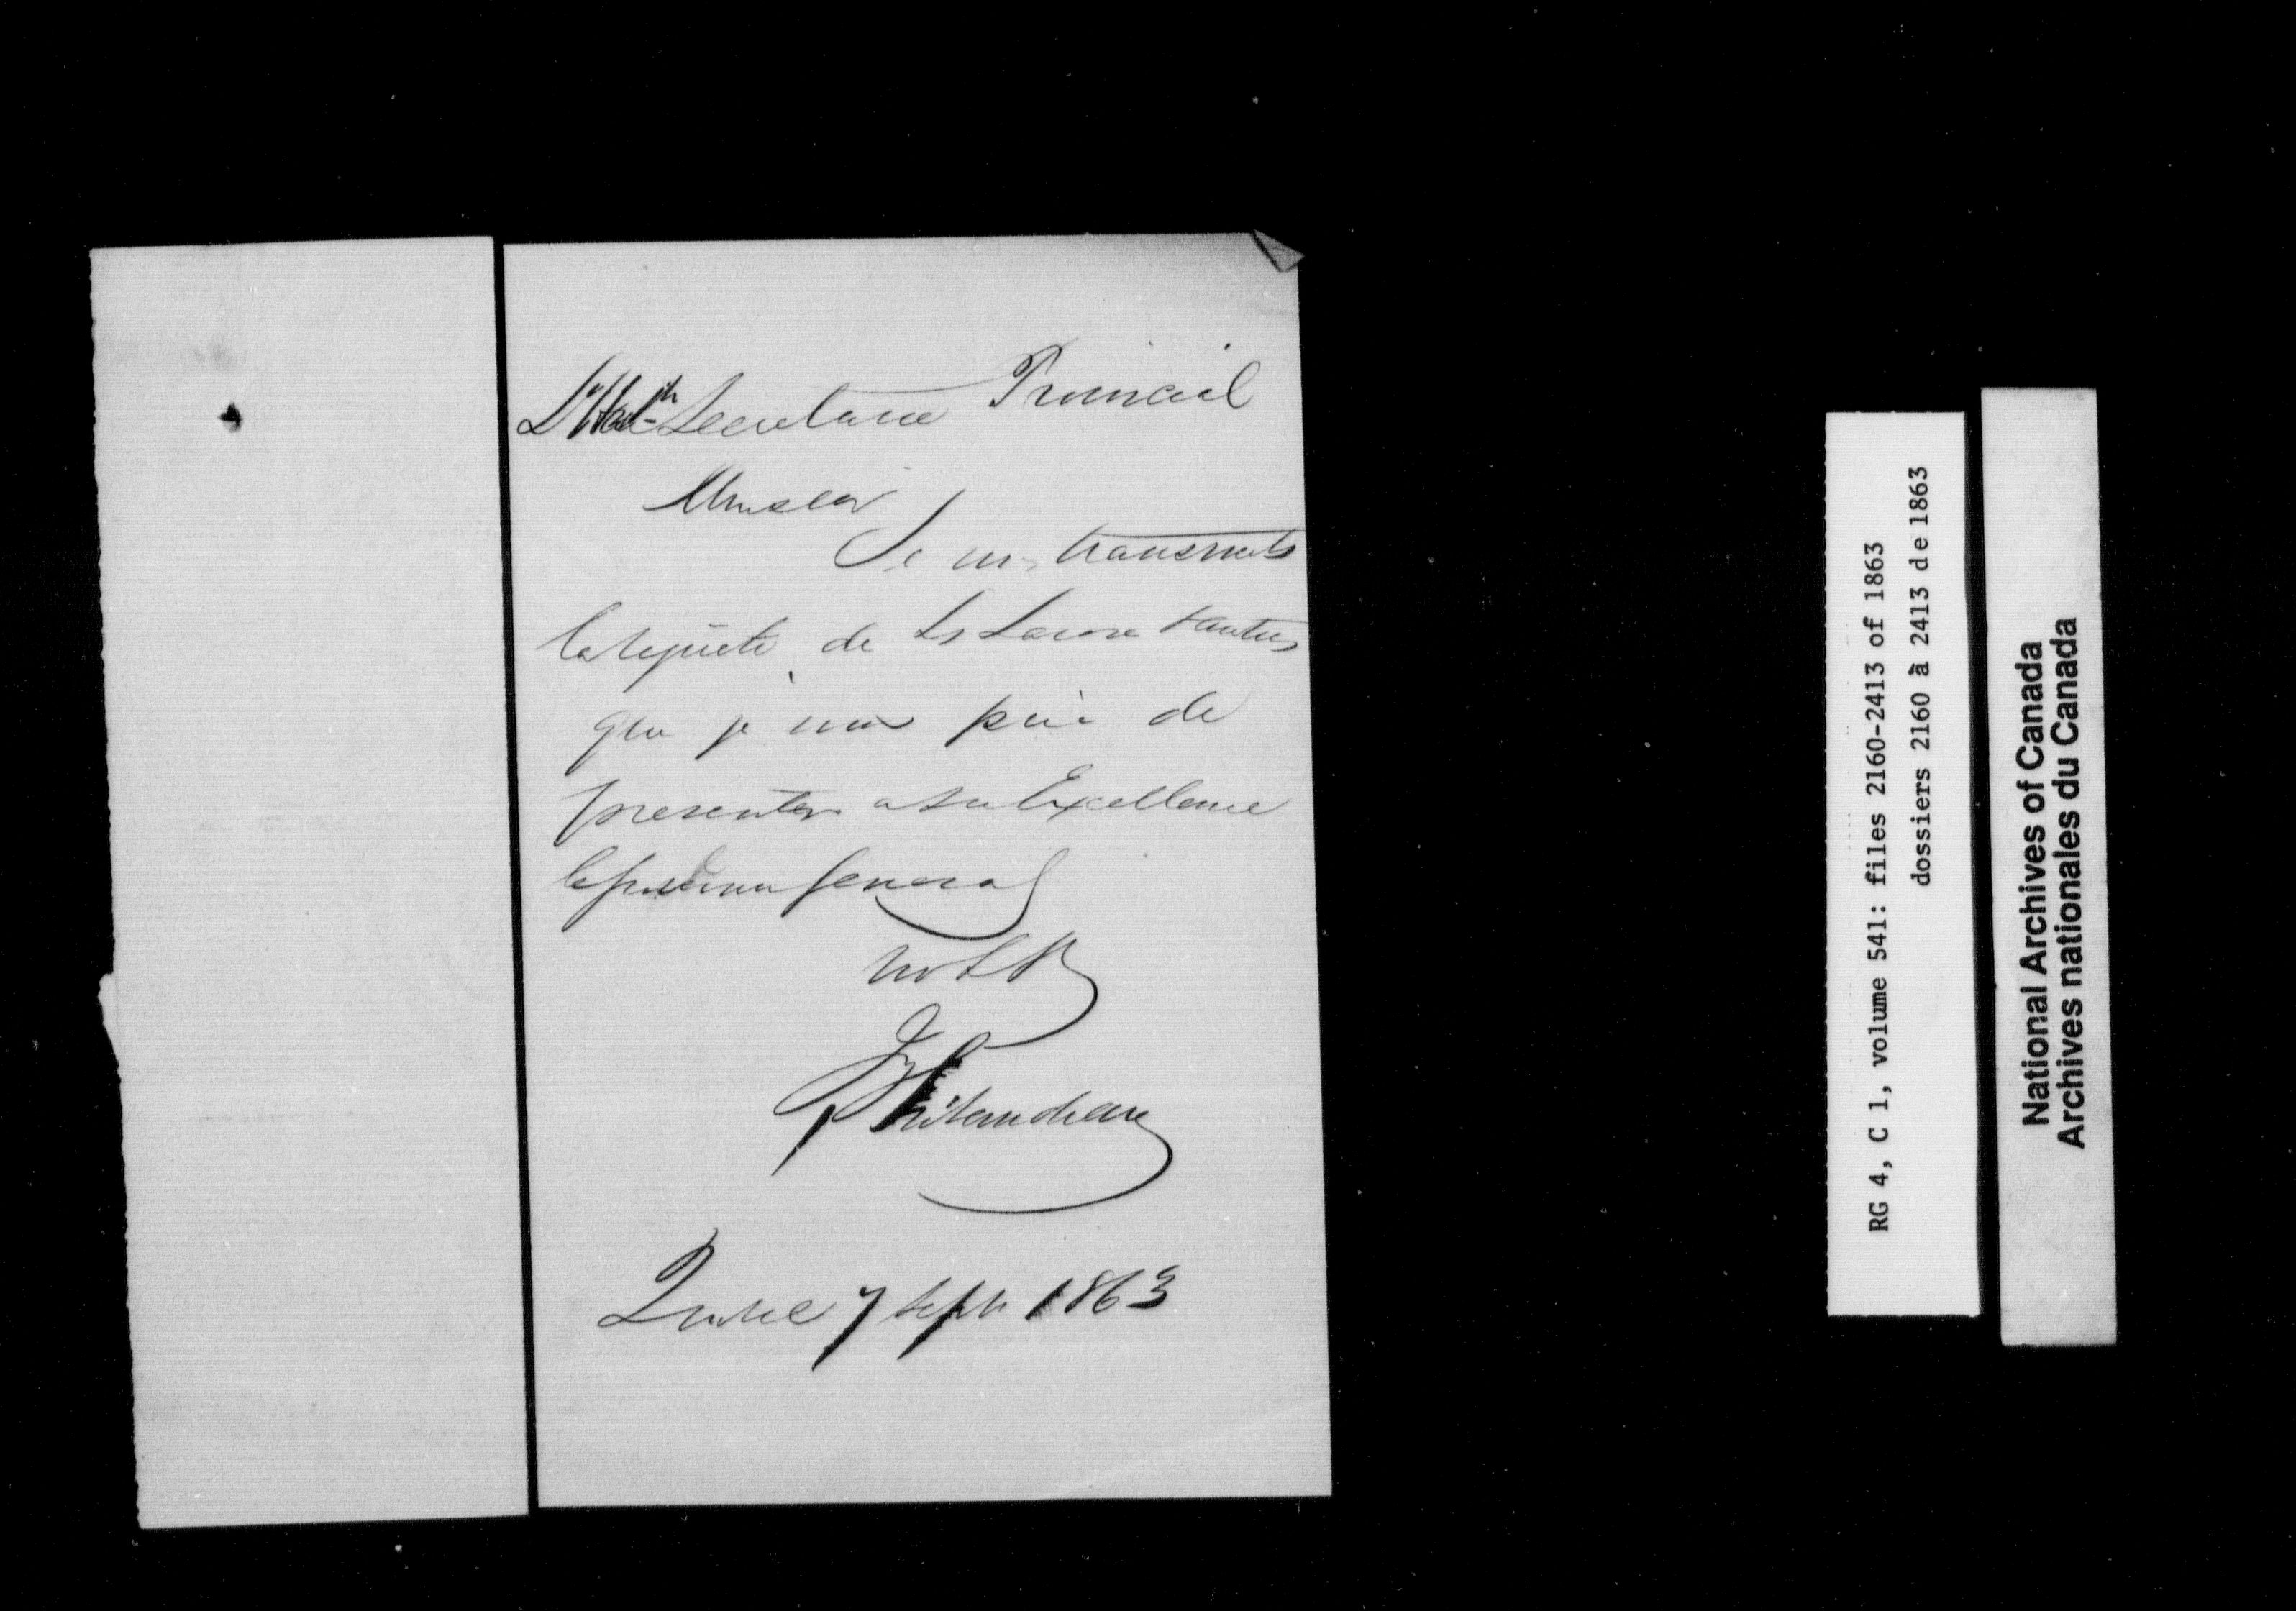 L'Hon Secretaire Provincial
Monsieur
Je vous transmets
la requête de Ls Lacroix & autres
que je vous prie de
presenter a Son Excellence
le gouverneur general
votre S
Thibaudeau
Quebec 7 Septr 1863
RG 4, C 1, volume 541: files 2160-2413 of 1863
dossiers 2160 à 2413 de 1863
National Archives of Canada
Archives nationales du Canada